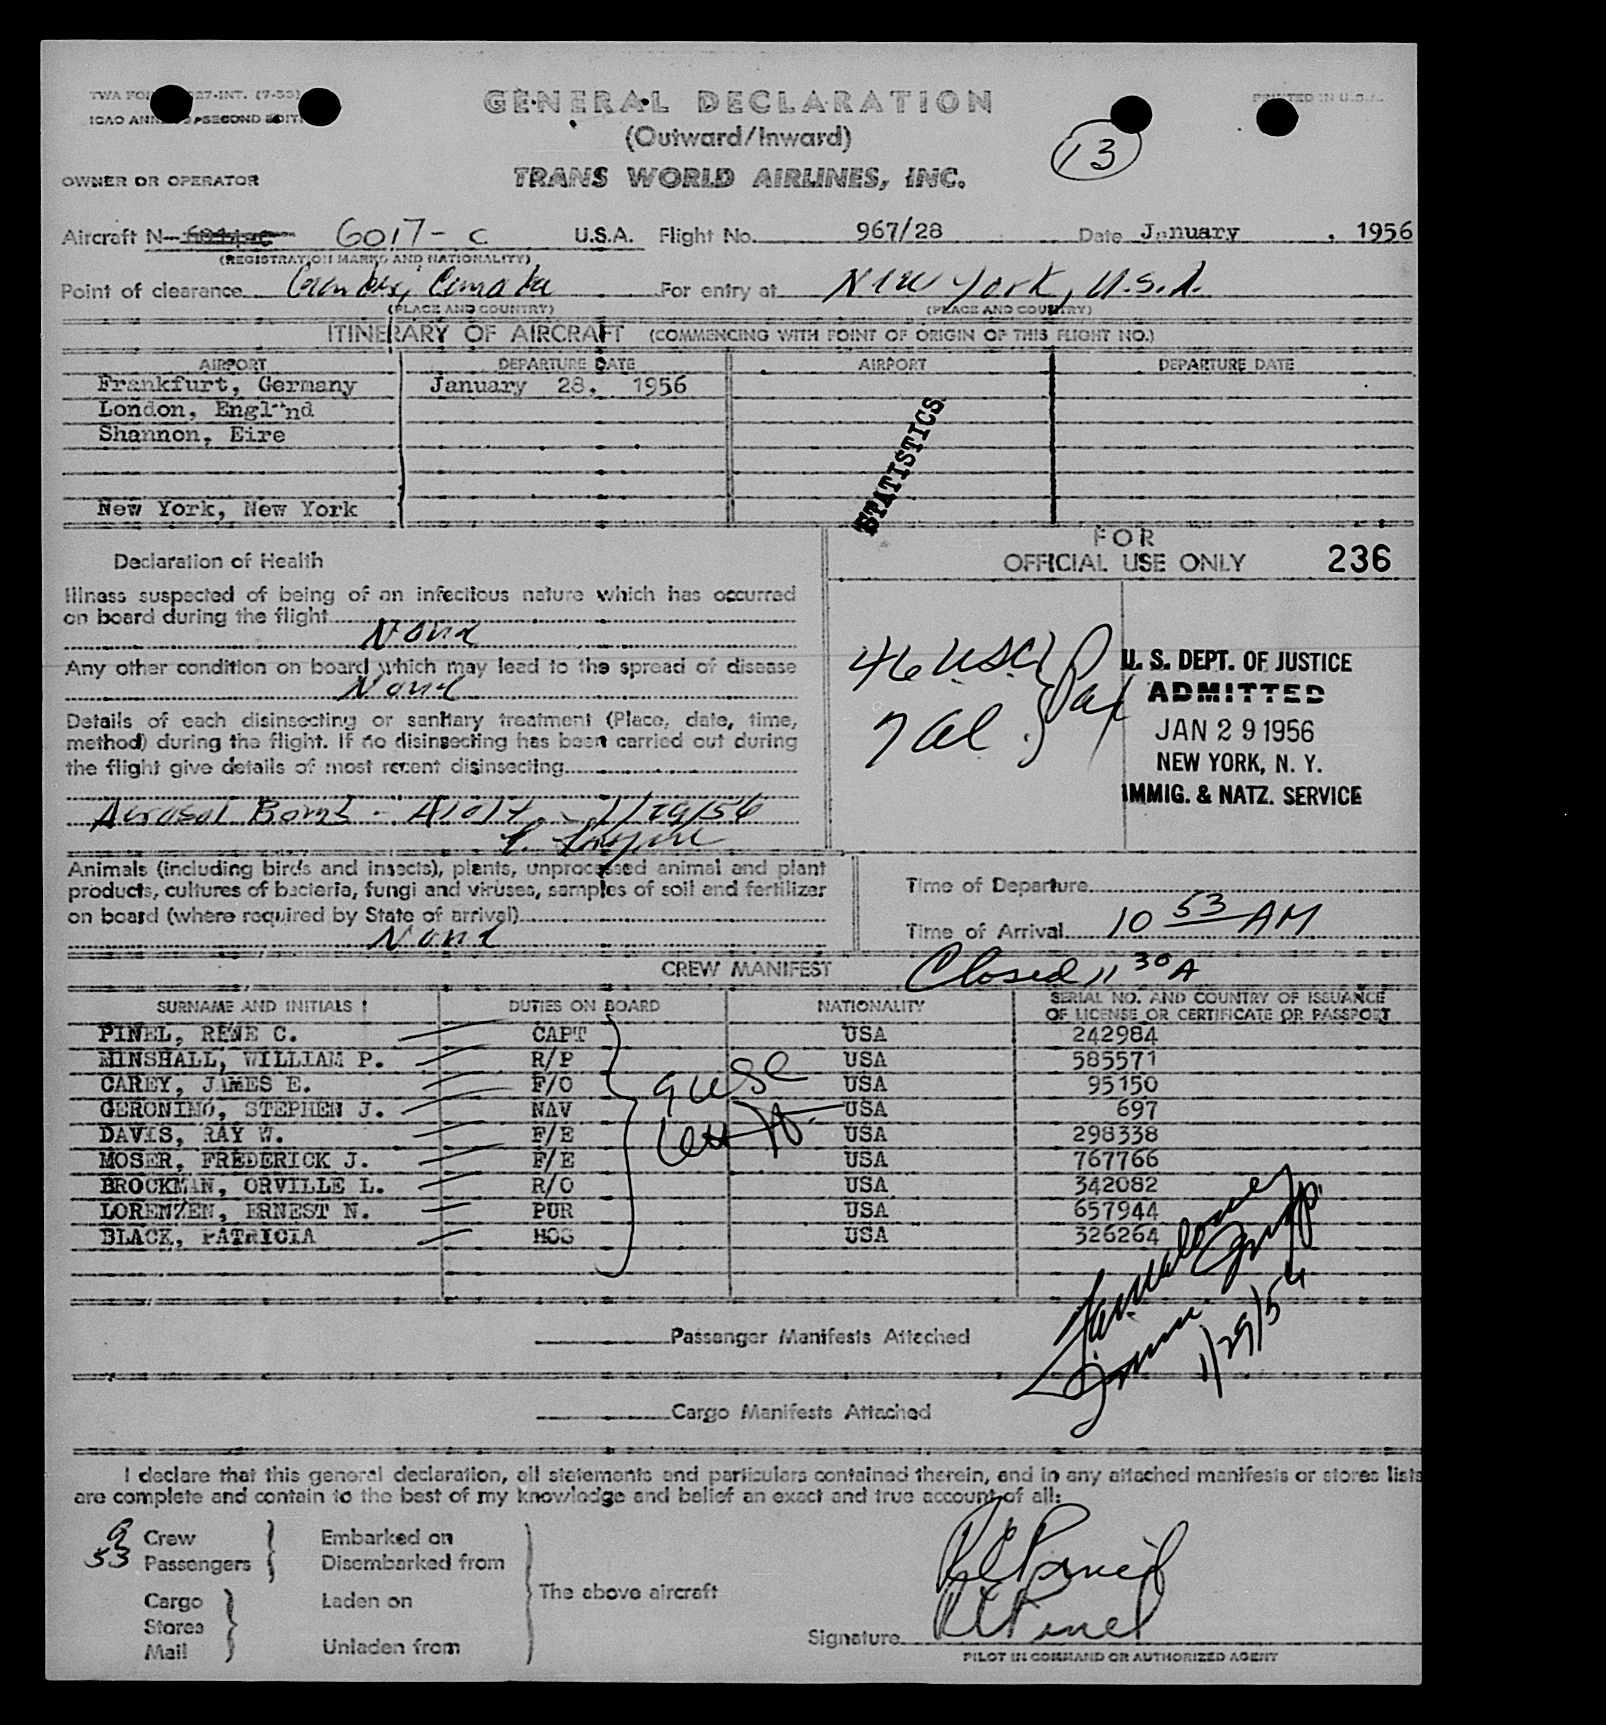 GENERAL DECLARATION
PRINTED IN U.S.A.
(Outward/Inward)
13
OWNER OR OPERATOR
TRANS WORLD AIRLINES, INC.
Aircraft N- 6017-C U.S.A. Flight No. 967/28 Date January, 1956
(REGISTRATION MARKS AND NATIONALITY)
Point of clearance Canada For entry at New York, U.S.A.
(PLACE AND COUNTRY) (PLACE AND COUNTRY)
ITINERARY OF AIRCRAFT (COMMENCING WITH POINT OF ORIGIN OF THIS FLIGHT NO.)
AIRPORT DEPARTURE DATE AIRPORT DEPARTURE DATE
Frankfurt, Germany January 28, 1956
London, England
Shannon, Eire
STATISTICS
New York, New York
FOR
OFFICIAL USE ONLY 236
Declaration of Health
Illness suspected of being of an infectious nature which has occurred
on board during the flight
None
Any other condition on board which may lead to the spread of disease
None
Details of each disinsecting or sanitary treatment (Place, date, time,
method) during the flight. If no disinsecting has been carried out during
the flight give details of most recent disinsecting
Aerosol Bomb - Aloft - 1/29/56
46 USC
7 Al Pax
U. S. DEPT. OF JUSTICE
ADMITTED
JAN 29 1956
NEW YORK, N. Y.
IMMIG. & NATZ. SERVICE
Animals (including birds and insects), plants, unprocessed animal and plant
products, cultures of bacteria, fungi and viruses, samples of soil and fertilizer
on board (where required by State of arrival)
None
Time of Departure
Time of Arrival 10 53 AM
Closed 11 30 A
CREW MANIFEST
SURNAME AND INITIALS DUTIES ON BOARD NATIONALITY SERIAL NO. AND COUNTRY OF ISSUANCE
OF LICENSE OR CERTIFICATE OR PASSPORT
PINEL, RENE C. CAPT USA 242984
MINSHALL, WILLIAM P. R/P USA 585571
CAREY, JAMES E. F/O USA 95150
GERONIMO, STEPHEN J. NAV USA 697
DAVIS, RAY W. F/E USA 298338
MOSER, FREDERICK J. F/E USA 767766
BROCKMAN, ORVILLE L. R/O USA 342082
LORENZEN, ERNEST N. PUR USA 657944
BLACK, PATRICIA HOS USA 326264
9 USC
1/29/56
Passenger Manifests Attached
Cargo Manifests Attached
I declare that this general declaration, all statements and particulars contained therein, and in any attached manifests or stores lists
are complete and contain to the best of my knowledge and belief an exact and true account of all:
9 Crew Embarked on
53 Passengers Disembarked from
The above aircraft
Cargo Laden on
Stores
Mail Unladen from
R C Pinel
R C Pinel
Signature
PILOT IN COMMAND OR AUTHORIZED AGENT